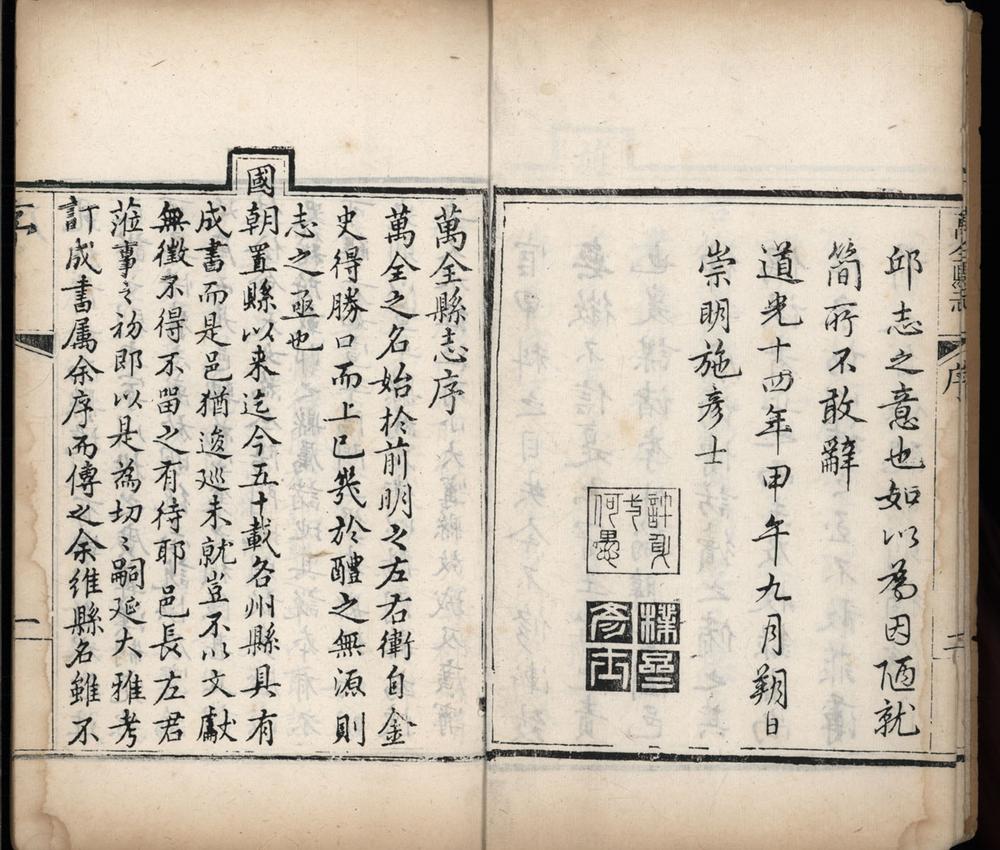 萬全縣志
序
二
邱志之意也如以為因陋就
簡所不敢辭
道光十四年甲午九月朔日
崇明施彥士
萬全縣志序
萬全之名始於前明之左右衛自金
史得勝口而上已㡬於醴之無源則
志之亟也
國朝置縣以来迄今五十載各州縣具有
成書而是邑猶逡巡未就豈不以文獻
無徵不得不畱之有待耶邑長左君
蒞事之初即以是為切〻嗣延大雅考
訂成書属余序而傳之余維縣名雖不
一